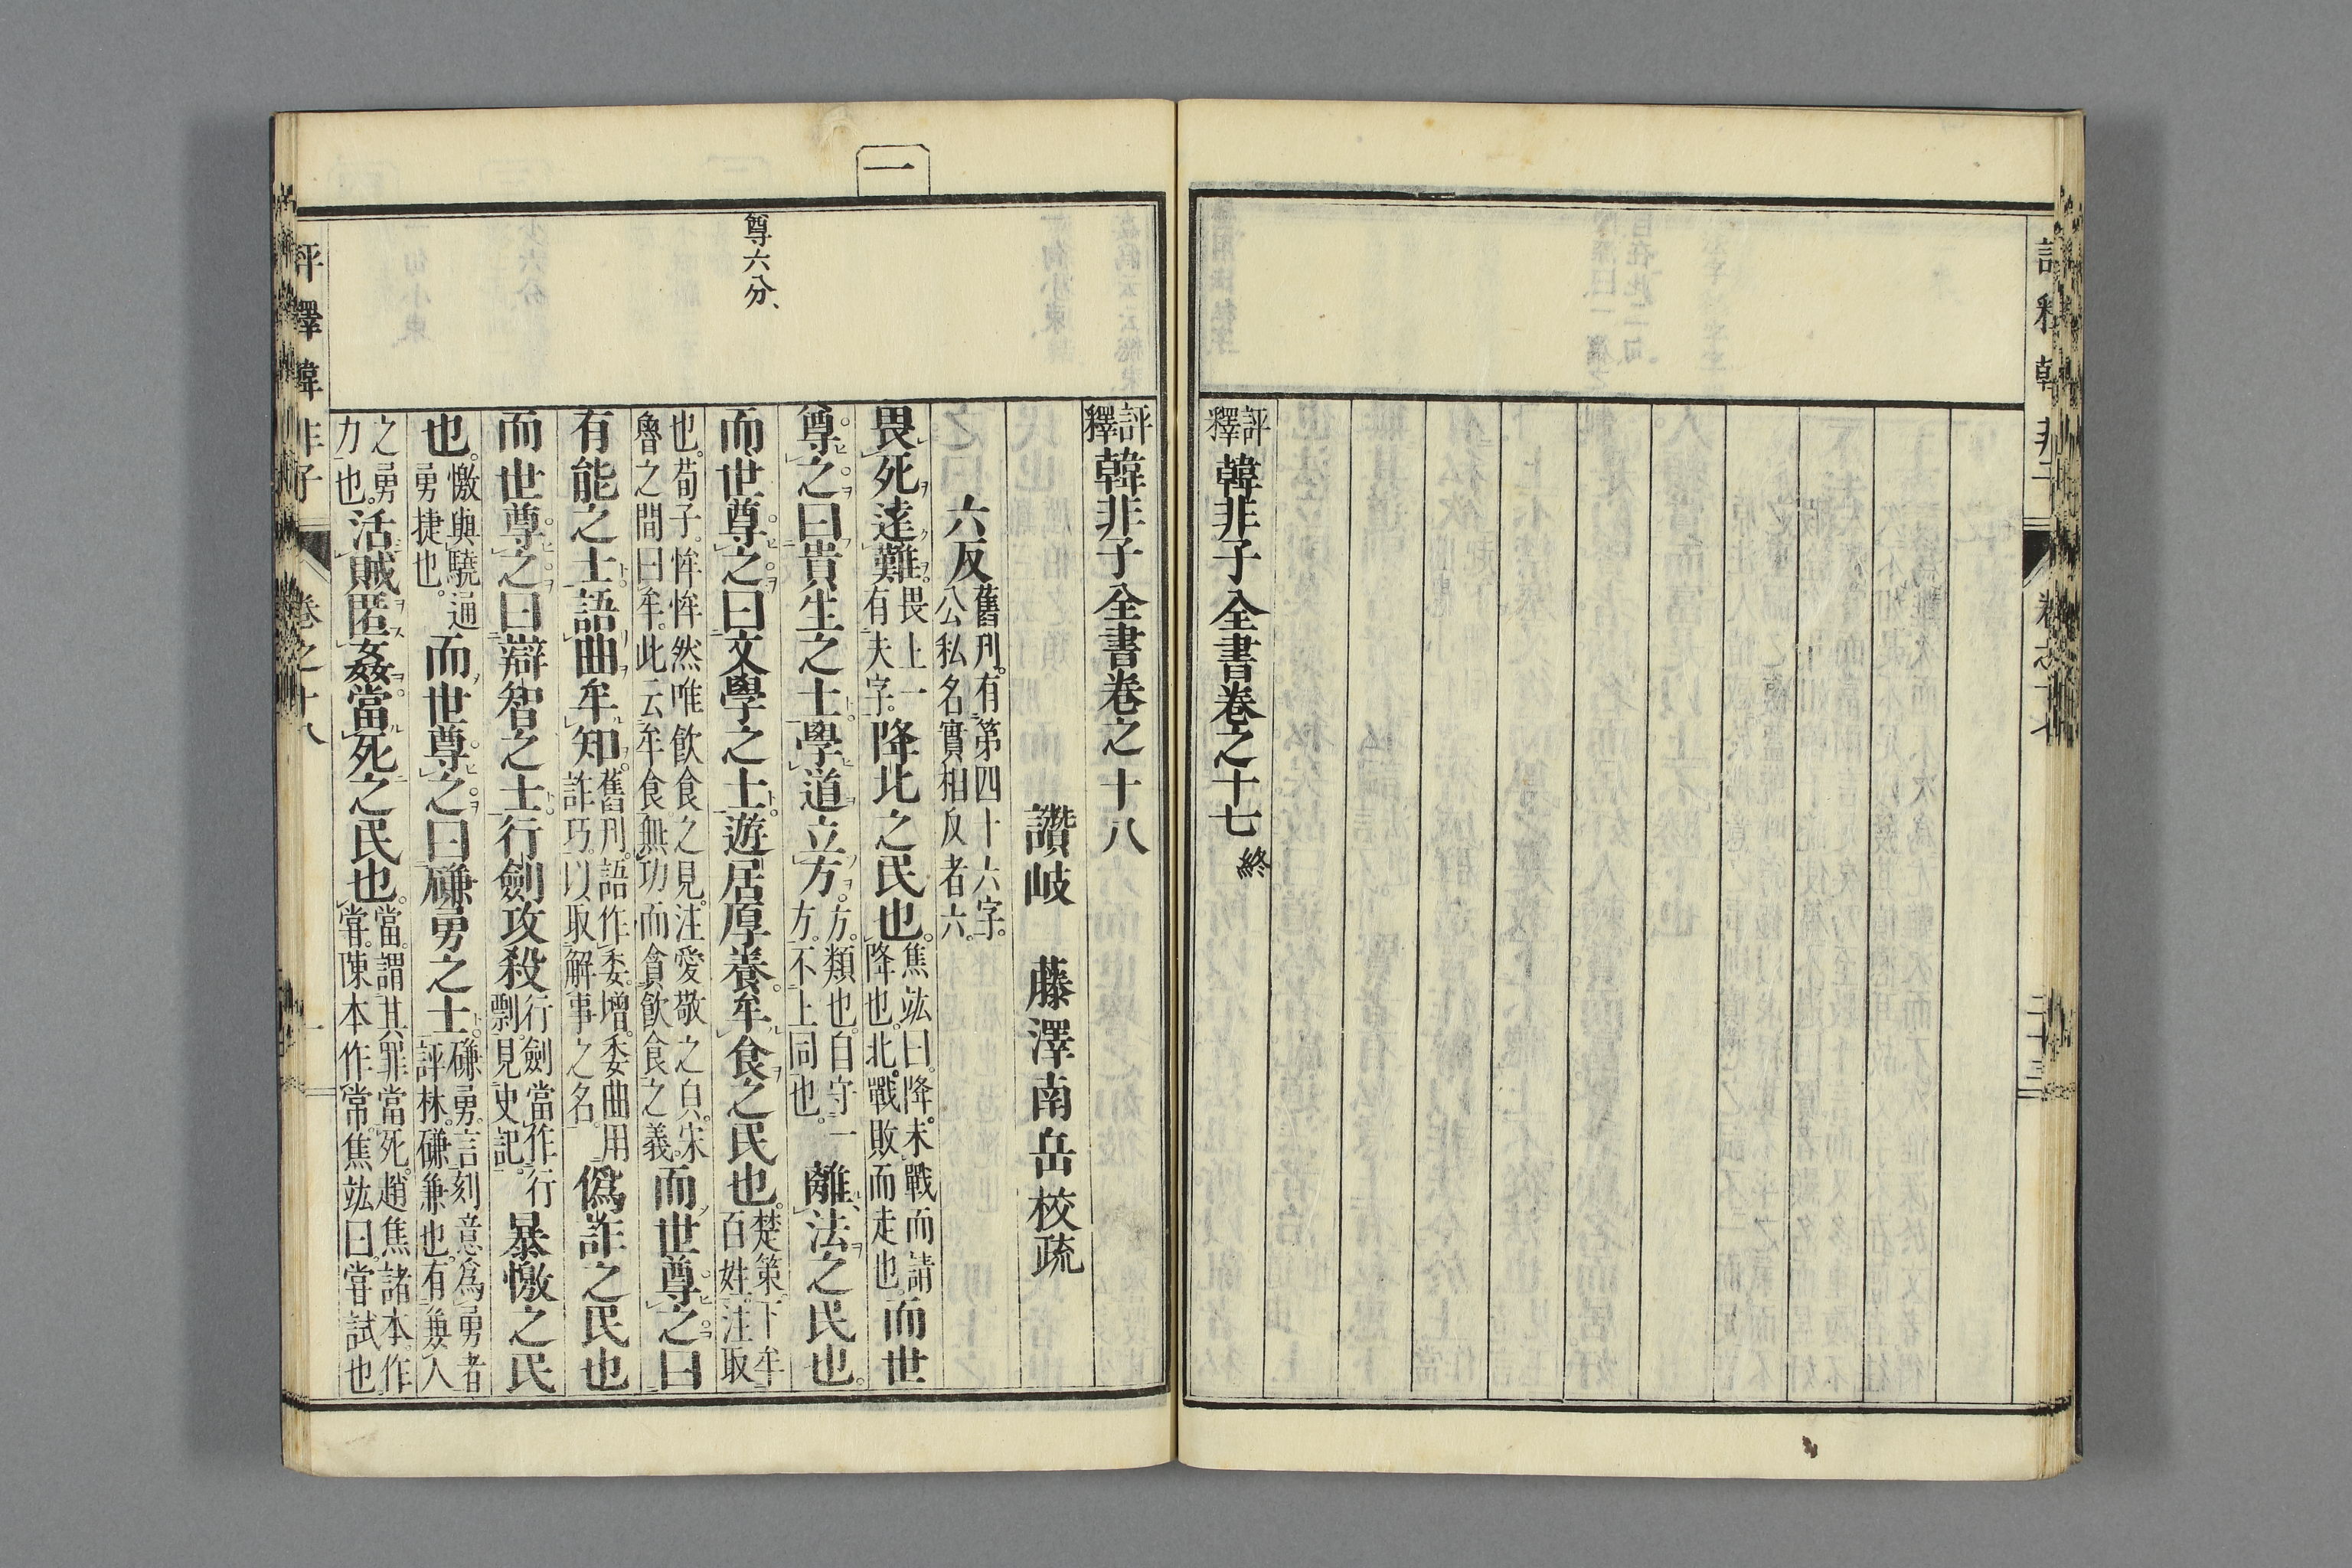 評釋韓非子 卷之十七 二十三
評釋韓非子全書卷之十七 終
一
尊六分、
評釋韓非子全書卷之十八
讚岐 藤澤南岳校疏
六反 舊刋。有第四十六字。公私名實相反者六。
畏死遠難。畏上一有夫字。降北之民也。焦竑曰。降。未戰而請降也。北。戰敗而走也。而世
尊之曰貴生之士。學道立方。方。類也。自守一方。不上同也。離法之民也。
而世尊之曰文學之士。遊居厚養。牟食之民也。楚策下牟百姓。注取
也。荀子。恈恈然唯飮食之見。注愛敬之皃。宋魯之間曰牟。此云牟食。無功而貪飮食之義。而世尊之曰
有能之士。語曲牟知。舊刋。語作委。增。委曲用詐巧。以取解事之名。僞詐之民也
而世尊之曰辯智之士。行劍攻殺行劍當作行剽。見史記。暴憿之民
也。憿與驍通勇捷也。而世尊之曰磏勇之士。磏勇。言刻意爲勇者評林。磏兼也。有兼人
之勇力也。活賊匿姦。當死之民也。當。謂其罪當死。趙焦諸本。作甞。陳本作常。焦竑曰。甞試也
評釋韓非子 卷之十八 一